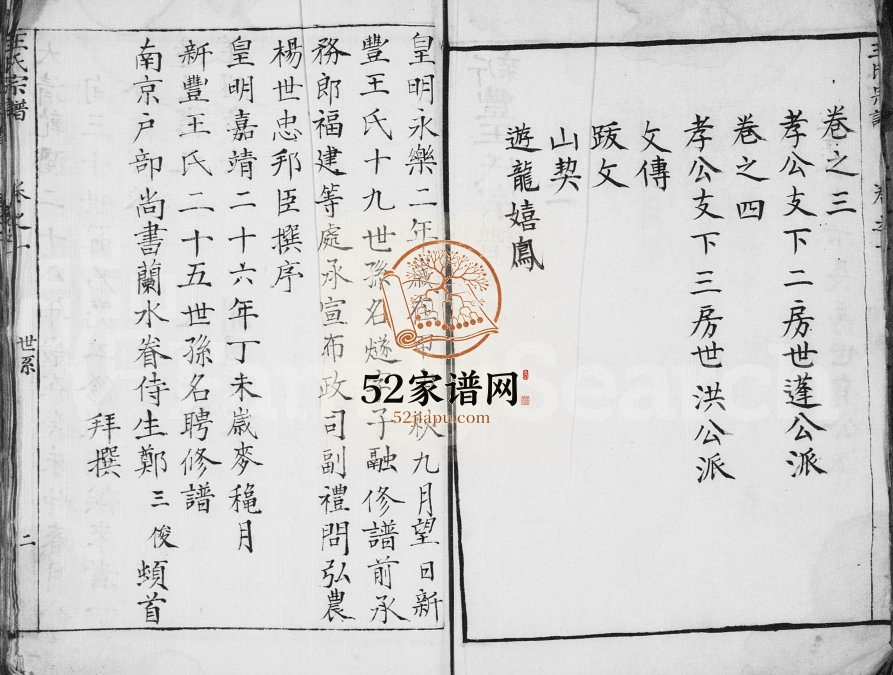 卷之三
孝公支下二房世蓬公派
卷之四
孝公支下三房世洪公派
文傳
跋文
山契
遊龍嬉鳳
皇明永樂二年歲在 秋九月望日新
豐王氏十九世孫名燧 子融修譜前承
務郎福建等處承宣布政司副禮問弘農
楊世忠邦臣撰序
皇明嘉靖二十六年丁未歲麥穐月
新豐王氏二十五世孫名聘修譜
南京戶部尚書蘭水眷侍生鄭三俊頓首
拜撰
王氏宗譜 卷之一 世系 二
52家谱网
52jiapu.com